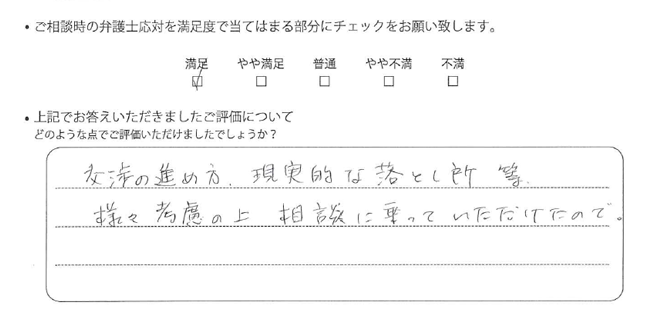 ・ご相談時の弁護士応対を満足度で当てはまる部分にチェックをお願い致します。
満足 やや満足 普通 やや不満 不満
☑ □ □ □ □
・上記でお答えいただきましたご評価について
どのような点でご評価いただけましたでしょうか？
交渉の進め方、現実的な落とし所 等、
様々考慮の上 相談に乗っていただけたので。